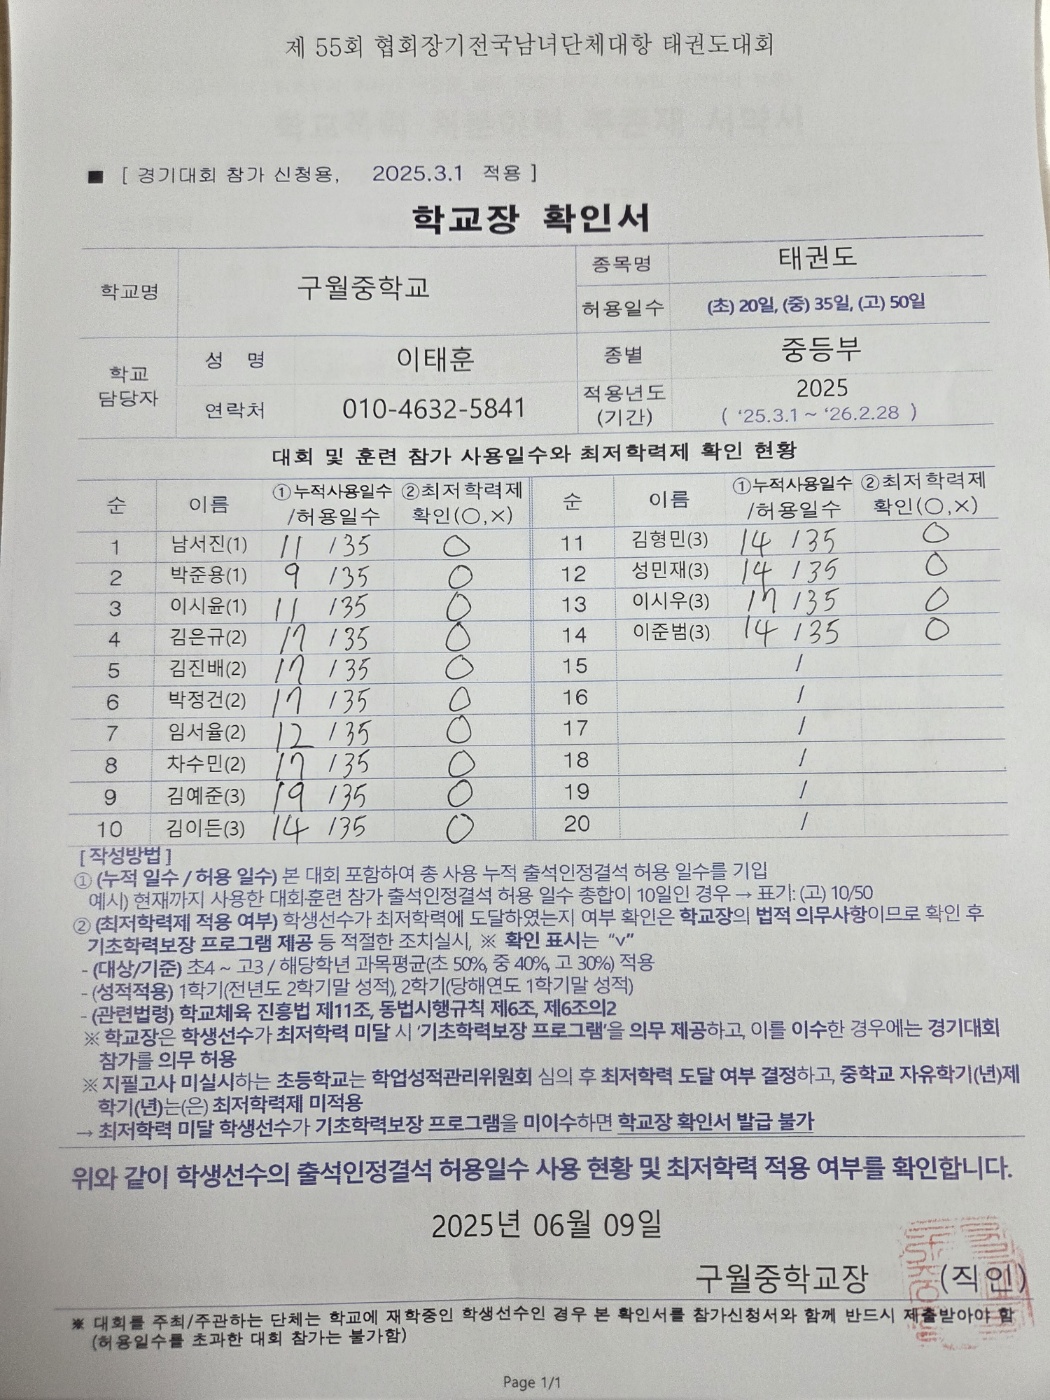 제 55회 협회장기전국남녀단체대항 태권도대회
■ [ 경기대회 참가 신청용, 2025.3.1 적용 ]
학교장 확인서
학교명 구월중학교 종목명 태권도
허용일수 (초) 20일, (중) 35일, (고) 50일
학교 담당자 성 명 이태훈 종별 중등부
연락처 010-4632-5841 적용년도 (기간) 2025 ( ‘25.3.1 ~ ‘26.2.28 )
대회 및 훈련 참가 사용일수와 최저학력제 확인 현황
순 이름 ①누적사용일수 /허용일수 ②최저학력제 확인(○,×) 순 이름 ①누적사용일수 /허용일수 ②최저학력제 확인(○,×)
1 남서진(1) 11 / 35 ○ 11 김형민(3) 14 / 35 ○
2 박준용(1) 9 / 35 ○ 12 성민재(3) 14 / 35 ○
3 이시윤(1) 11 / 35 ○ 13 이시우(3) 17 / 35 ○
4 김은규(2) 17 / 35 ○ 14 이준범(3) 14 / 35 ○
5 김진배(2) 17 / 35 ○ 15 /
6 박정건(2) 17 / 35 ○ 16 /
7 임서율(2) 12 / 35 ○ 17 /
8 차수민(2) 17 / 35 ○ 18 /
9 김예준(3) 19 / 35 ○ 19 /
10 김이든(3) 14 / 35 ○ 20 /
[ 작성방법 ]
① (누적 일수 / 허용 일수) 본 대회 포함하여 총 사용 누적 출석인정결석 허용 일수를 기입
예시) 현재까지 사용한 대회·훈련 참가 출석인정결석 허용 일수 총합이 10일인 경우 → 표기: (고) 10/50
② (최저학력제 적용 여부) 학생선수가 최저학력에 도달하였는지 여부 확인은 학교장의 법적 의무사항이므로 확인 후
기초학력보장 프로그램 제공 등 적절한 조치실시, ※ 확인 표시는 “v”
- (대상/기준) 초4 ~ 고3 / 해당학년 과목평균(초 50%, 중 40%, 고 30%) 적용
- (성적적용) 1학기(전년도 2학기말 성적), 2학기(당해연도 1학기말 성적)
- (관련법령) 학교체육 진흥법 제11조, 동법시행규칙 제6조, 제6조의2
※ 학교장은 학생선수가 최저학력 미달 시 ‘기초학력보장 프로그램’을 의무 제공하고, 이를 이수한 경우에는 경기대회
참가를 의무 허용
※ 지필고사 미실시하는 초등학교는 학업성적관리위원회 심의 후 최저학력 도달 여부 결정하고, 중학교 자유학기(년)제
학기(년)는(은) 최저학력제 미적용
→ 최저학력 미달 학생선수가 기초학력보장 프로그램을 미이수하면 학교장 확인서 발급 불가
위와 같이 학생선수의 출석인정결석 허용일수 사용 현황 및 최저학력 적용 여부를 확인합니다.
2025년 06월 09일
구월중학교장 (직인)
※ 대회를 주최/주관하는 단체는 학교에 재학중인 학생선수인 경우 본 확인서를 참가신청서와 함께 반드시 제출받아야 함
(허용일수를 초과한 대회 참가는 불가함)
Page 1/1